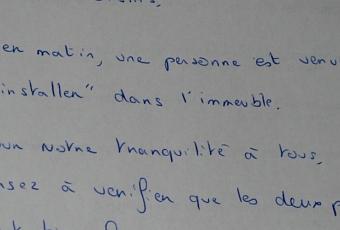 en matin, une personne est venu
installer" dans l'immeuble.
ur notre tranquilité à tous,
nsez à verifier que les deux p